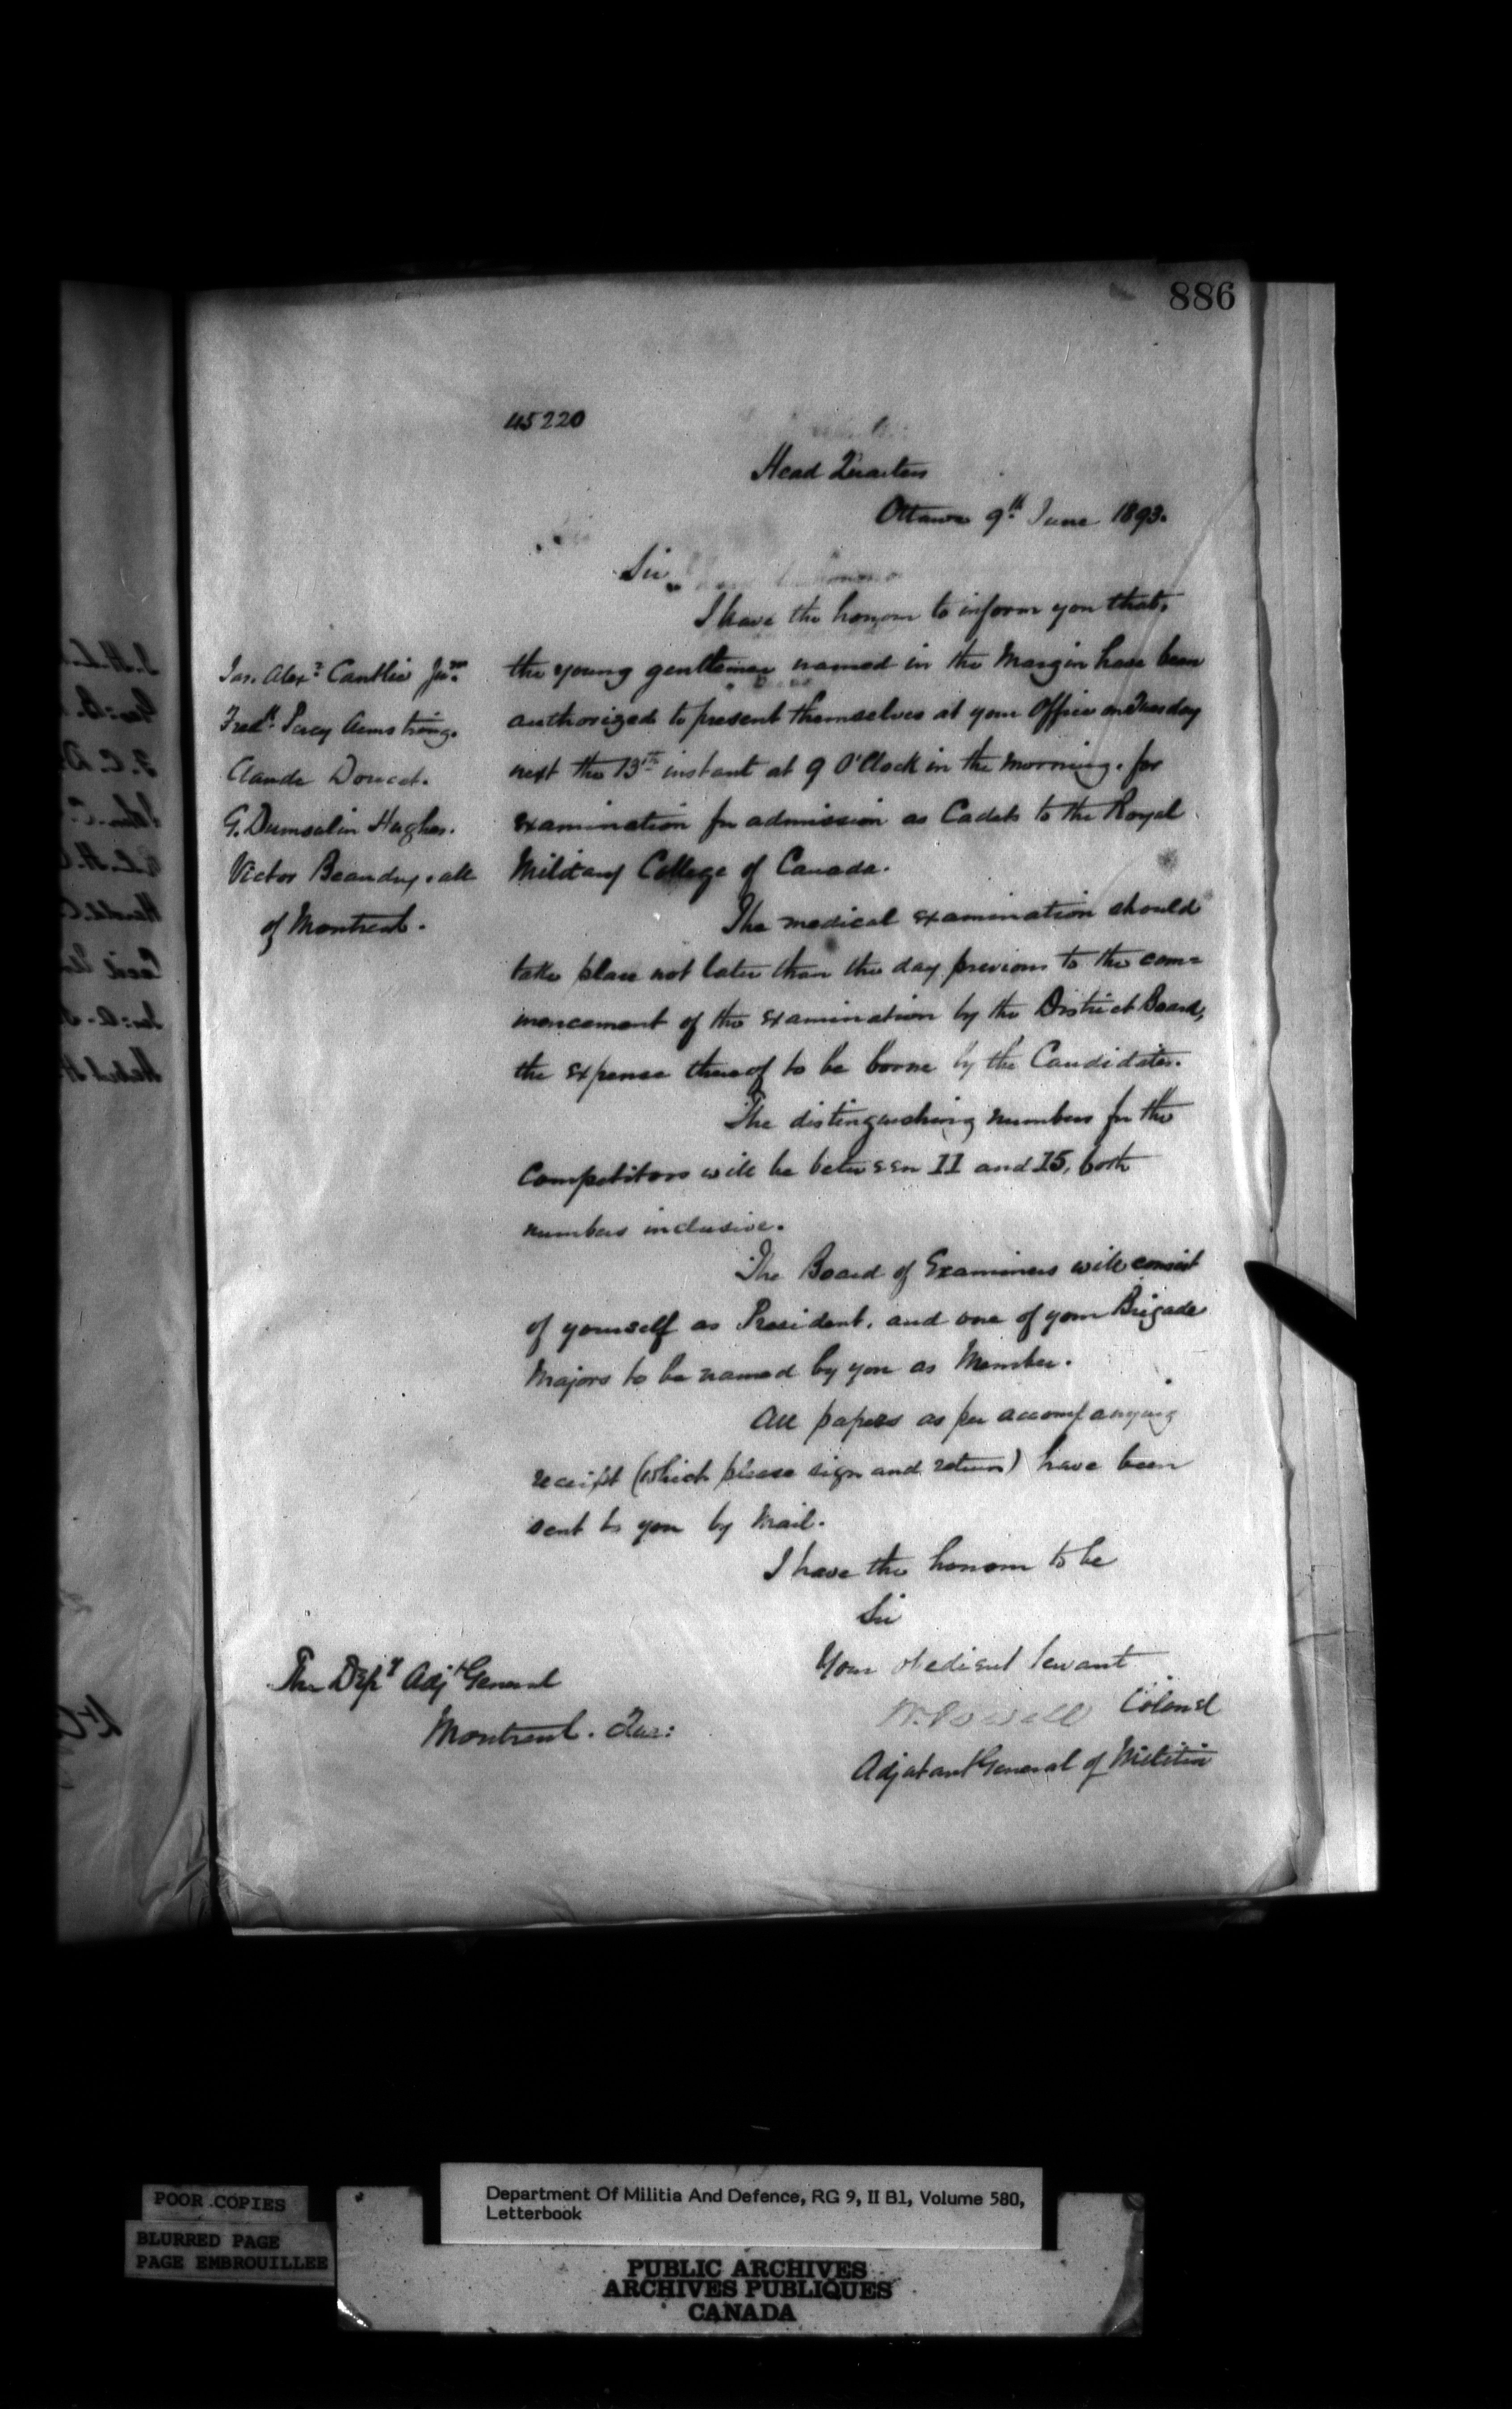 886
45220
Head Quarters
Ottawa 9th June 1893.
Sir,
I have the honour to inform you that,
the young gentlemen named in the Margin have been
authorized to present themselves at your Office on Tuesday
next the 13th instant at 9 O'Clock in the morning, for
examination for admission as Cadets to the Royal
Military College of Canada.
Jas. Alexr Cantlie Junr
Fredk Percy Armstrong.
Claude Doucet.
G. Dumoulin Hughes.
Victor Beaudry, all
of Montreal.
The medical examination should
take place not later than the day previous to the com=
mencement of the examination by the District Board,
the expense thereof to be borne by the Candidates.
The distinguishing numbers for the
Competitors will be between 11 and 15, both
numbers inclusive.
The Board of Examiners will consist
of yourself as President, and one of your Brigade
Majors to be named by you as Member.
All papers as per accompanying
receipt (which please sign and return) have been
sent to you by Mail.
I have the honour to be
Sir
Your obedient Servant
W. Powell Colonel
Adjutant General of Militia
The Depy Adjt General
Montreal. Que:
POOR COPIES
BLURRED PAGE
PAGE EMBROUILLEE
Department Of Militia And Defence, RG 9, II B1, Volume 580,
Letterbook
PUBLIC ARCHIVES
ARCHIVES PUBLIQUES
CANADA